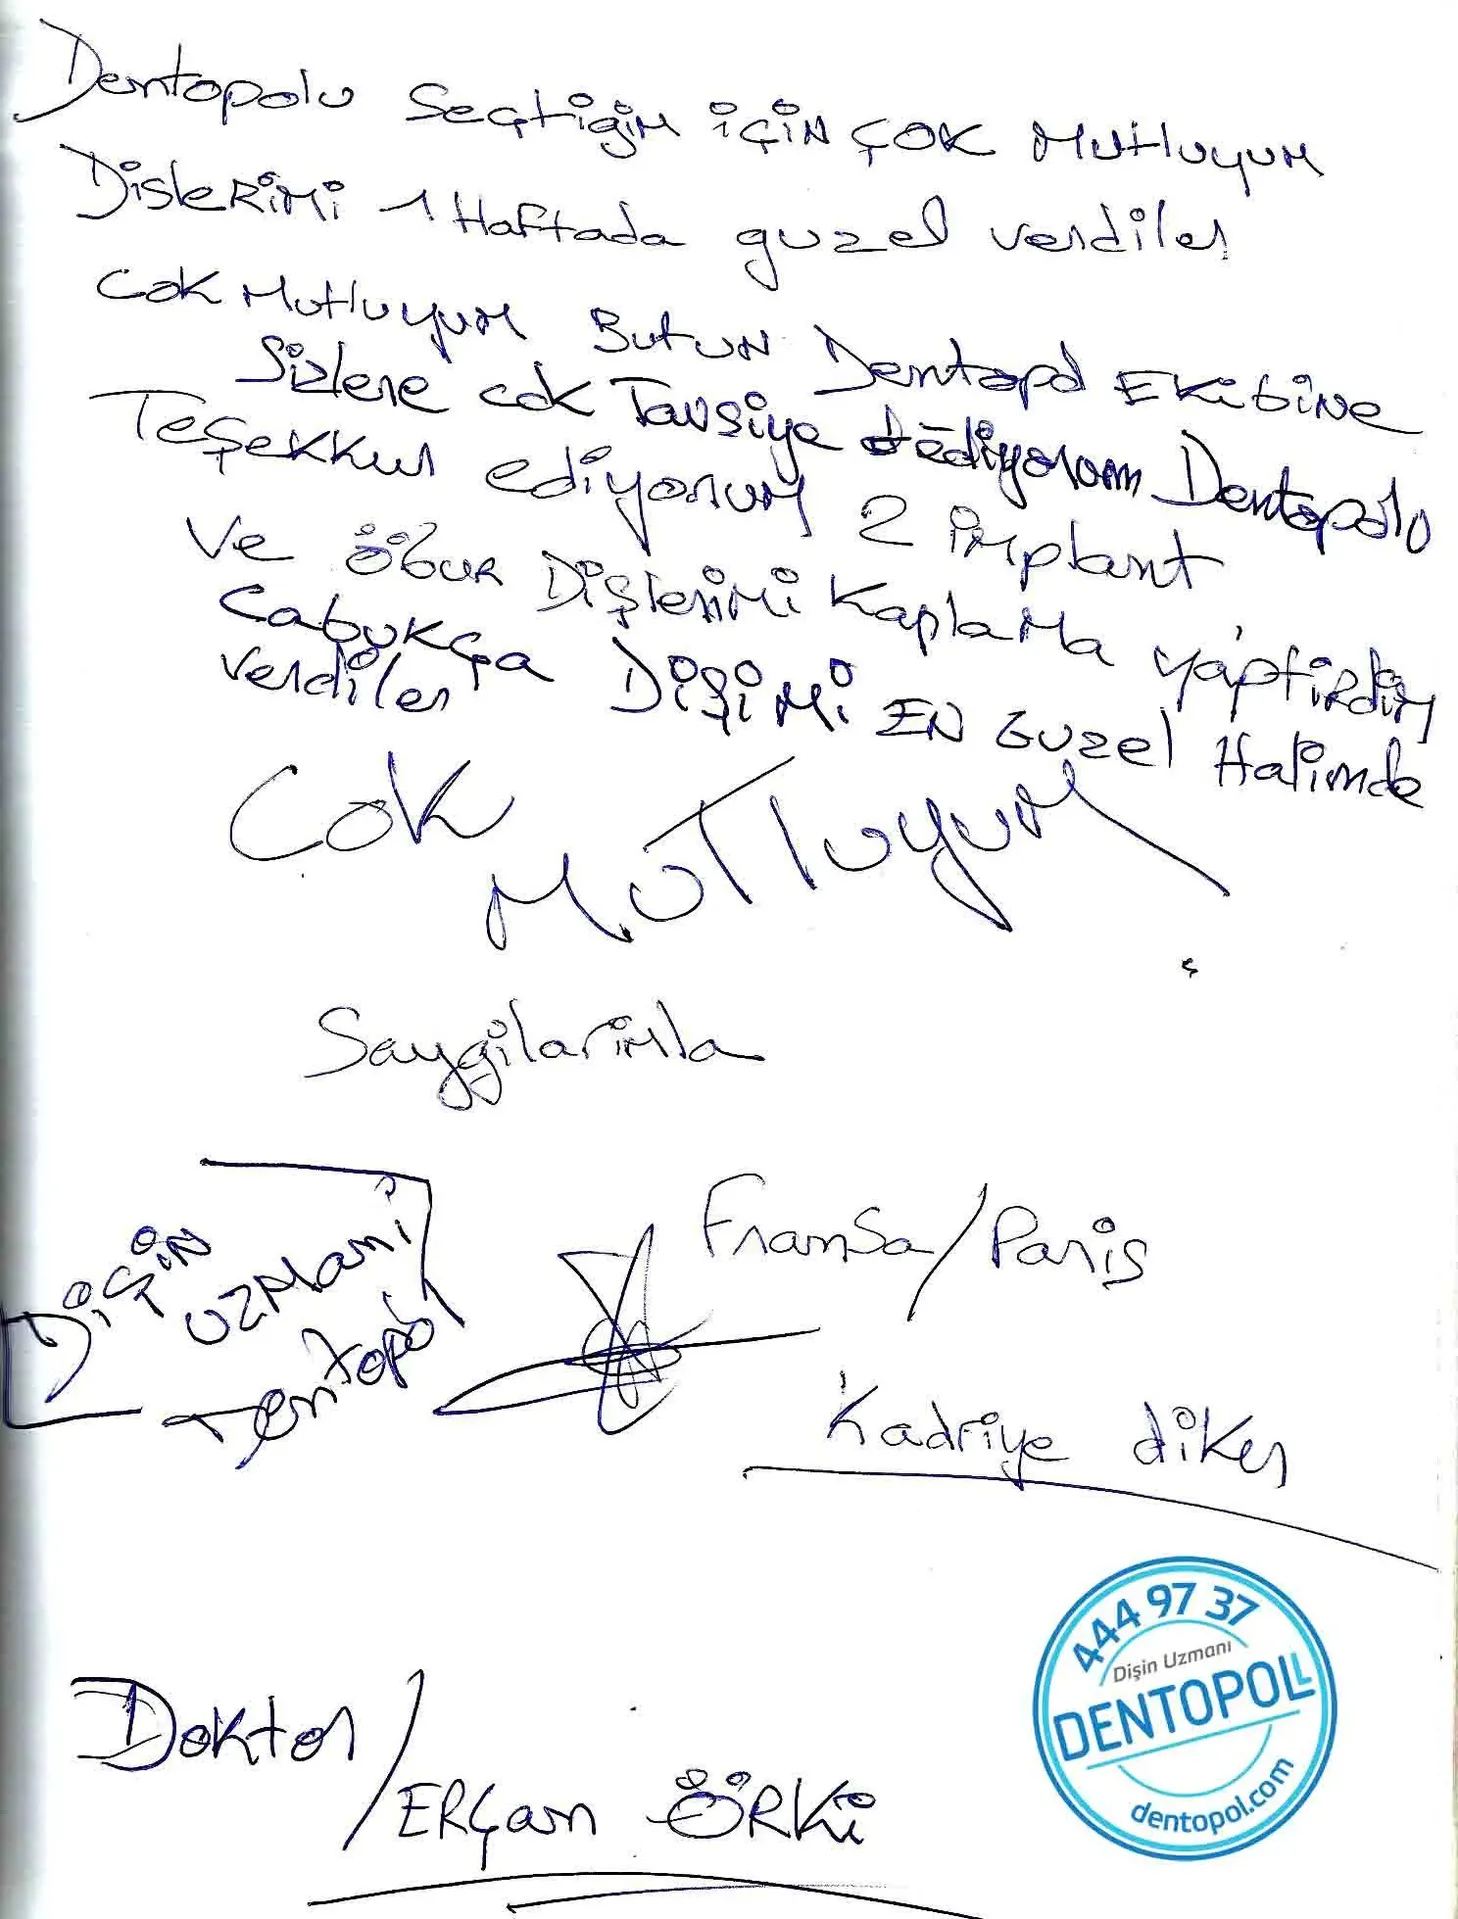 Dentopolu Seçtiğim için çok Mutluyum
Dislerimi 1 Haftada guzel verdiler
cok Mutluyum Butun Dentopol Ekibine
Sizlere cok Tavsiye ediyorum Dentopolu
Teşekkur ediyorum 2 implant
Ve öbur Dişlerimi kaplama yaptirdim
Cabukça Dişimi EN Guzel Halimde
verdiler
Cok
Mutluyum
Saygilarimla
Dişin
uzmani
Dentopol
Fransa/Paris
Kadriye diker
444 97 37
Dişin Uzmanı
DENTOPOL
dentopol.com
Doktor/
ERÇan ÖRKi